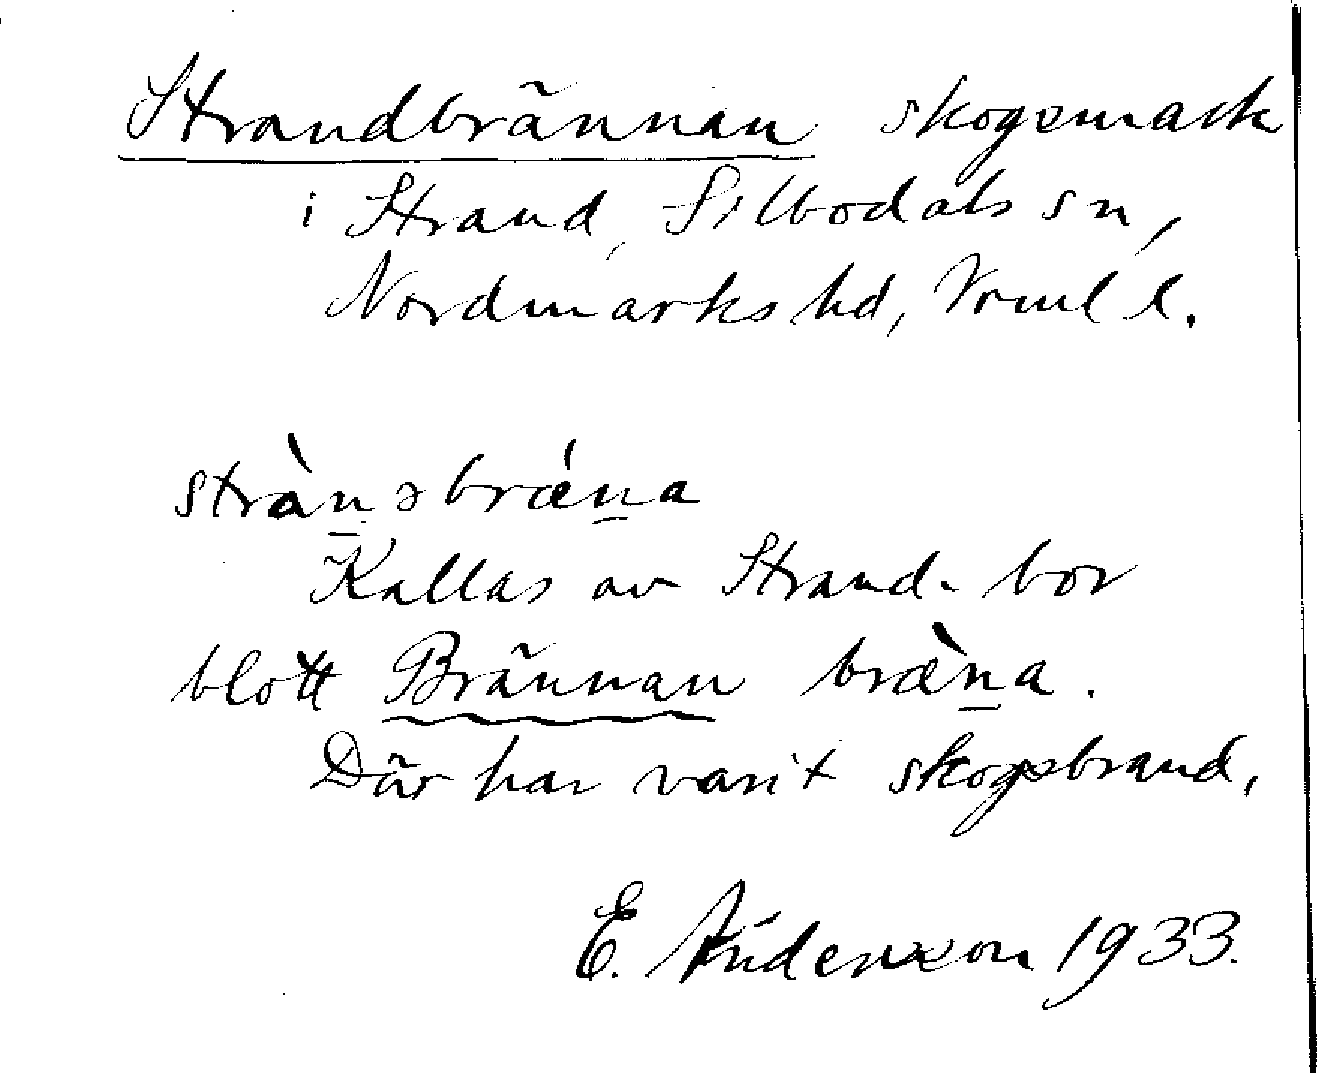 Strandbrännan skogsmark
i Strand, Silbodals sn,
Nordmarks hd, Vrml l.
strànsbrǽna
Kallas av Strand-bor
blott Brännan bræ̀na.
Där har varit skogsbrand.
E. 1933.